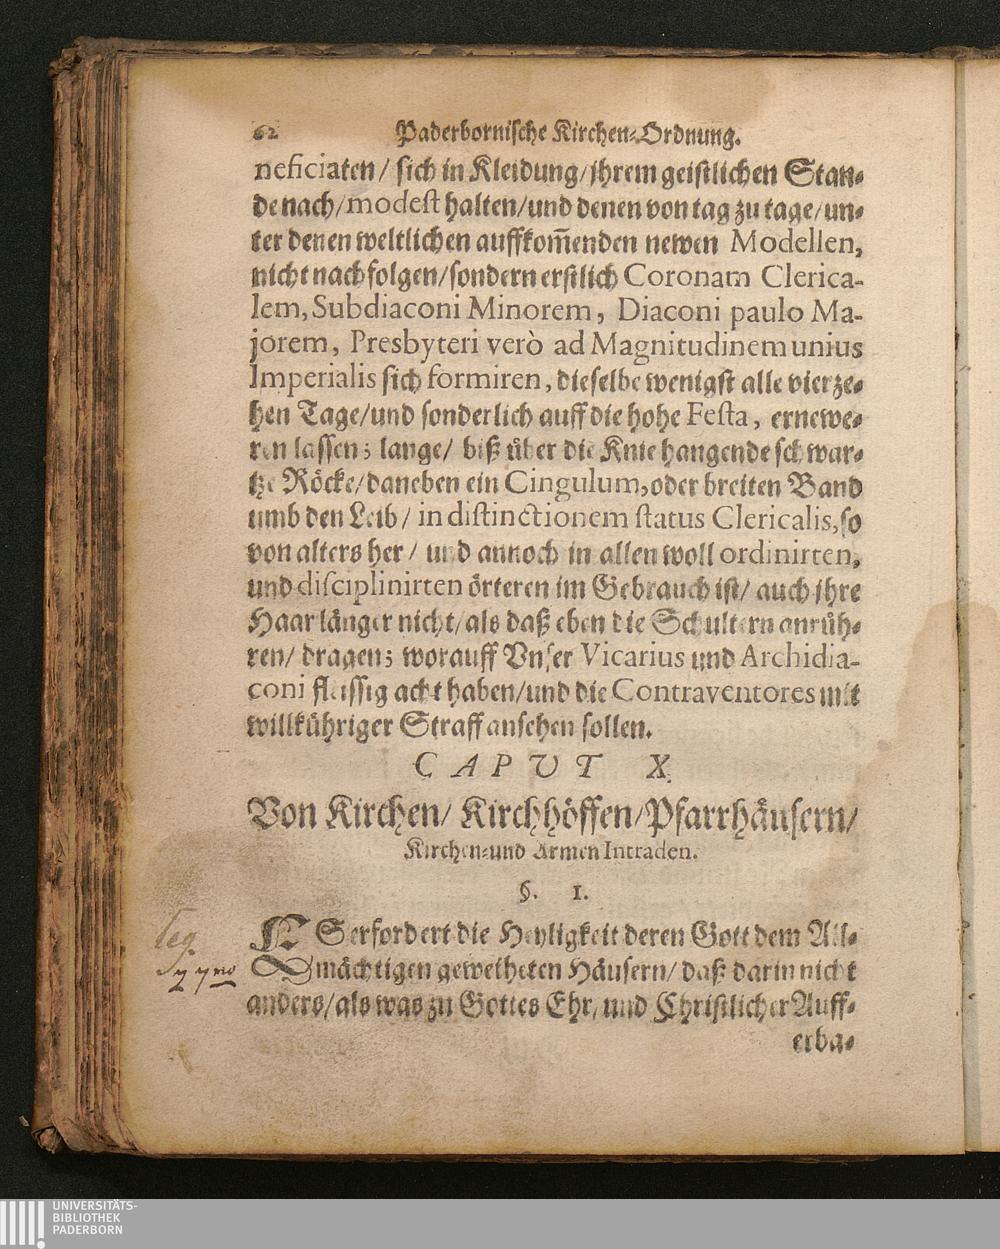 62 Paderbornische Kirchen-Ordnung.
neficiaten / sich in Kleidung / ihrem geistlichen Stan-
de nach / modest halten / und denen von tag zu tage / un-
ter denen weltlichen auffkom̃enden newen Modellen,
nicht nachfolgen / sondern erstlich Coronam Clerica-
lem, Subdiaconi Minorem, Diaconi paulo Ma-
jorem, Presbyteri verò ad Magnitudinem unius
Imperialis sich formiren, dieselbe wenigst alle vierze-
hen Tage / und sonderlich auff die hohe Festa, ernewe-
ren lassen; lange / biß über die Knie hangende schwar-
tze Röcke / daneben ein Cingulum, oder breiten Band
umb den Leib / in distinctionem status Clericalis, so
von alters her / und annoch in allen woll ordinirten,
und disciplinirten örteren im Gebrauch ist / auch ihre
Haar länger nicht / als daß eben die Schultern anrüh-
ren / dragen; worauff Unser Vicarius und Archidia-
coni fleissig acht haben / und die Contraventores mit
willkühriger Straff ansehen sollen.
CAPUT X.
Von Kirchen / Kirchhöffen / Pfarrhäusern /
Kirchen- und Armen Intraden.
§. 1.
ES erfordert die Heyligkeit deren Gott dem All-
mächtigen geweiheten Häusern / daß darin nicht
anders / als was zu Gottes Ehr / und Christlicher Auff-
erba-
leg
27mo
UNIVERSITÄTS-
BIBLIOTHEK
PADERBORN